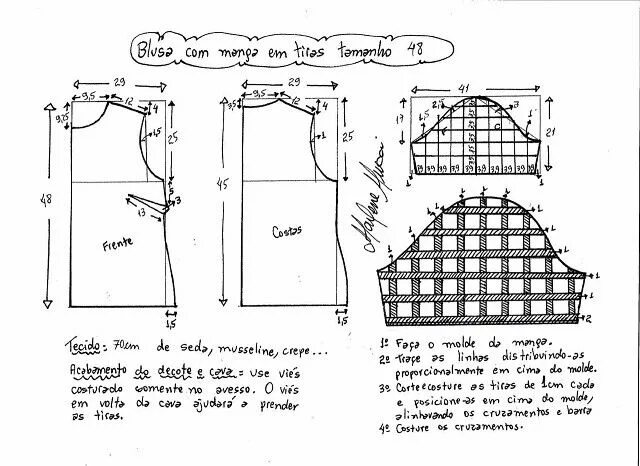 Blusa com manga em tiras tamanho 48
29
9,5
12
4
9,25
1,5
25
48
5
3
13
Frente
1,5
29
9,5
12
4
3,5
1
25
45
Costas
1,5
Marlene Mukai
41
2,5
3
17
1,5
F
C
1
21
39 39 39 39
39 39 39 39 39 39 39 39 39 39
1 1
1 1 1 1 1 1 1
1
1
1
1
2
Tecido: 70cm de seda, musseline, crepe...
Acabamento do decote e cava = use viés
costurado somente no avesso. O viés
em volta da cava ajudará a prender
as tiras.
1º Faça o molde da manga.
2º Trace as linhas distribuindo-as
proporcionalmente em cima do molde.
3º Corte e costure as tiras de 1cm cada
e posicione-as em cima do molde,
alinhavando os cruzamentos e barra
4º Costure os cruzamentos.